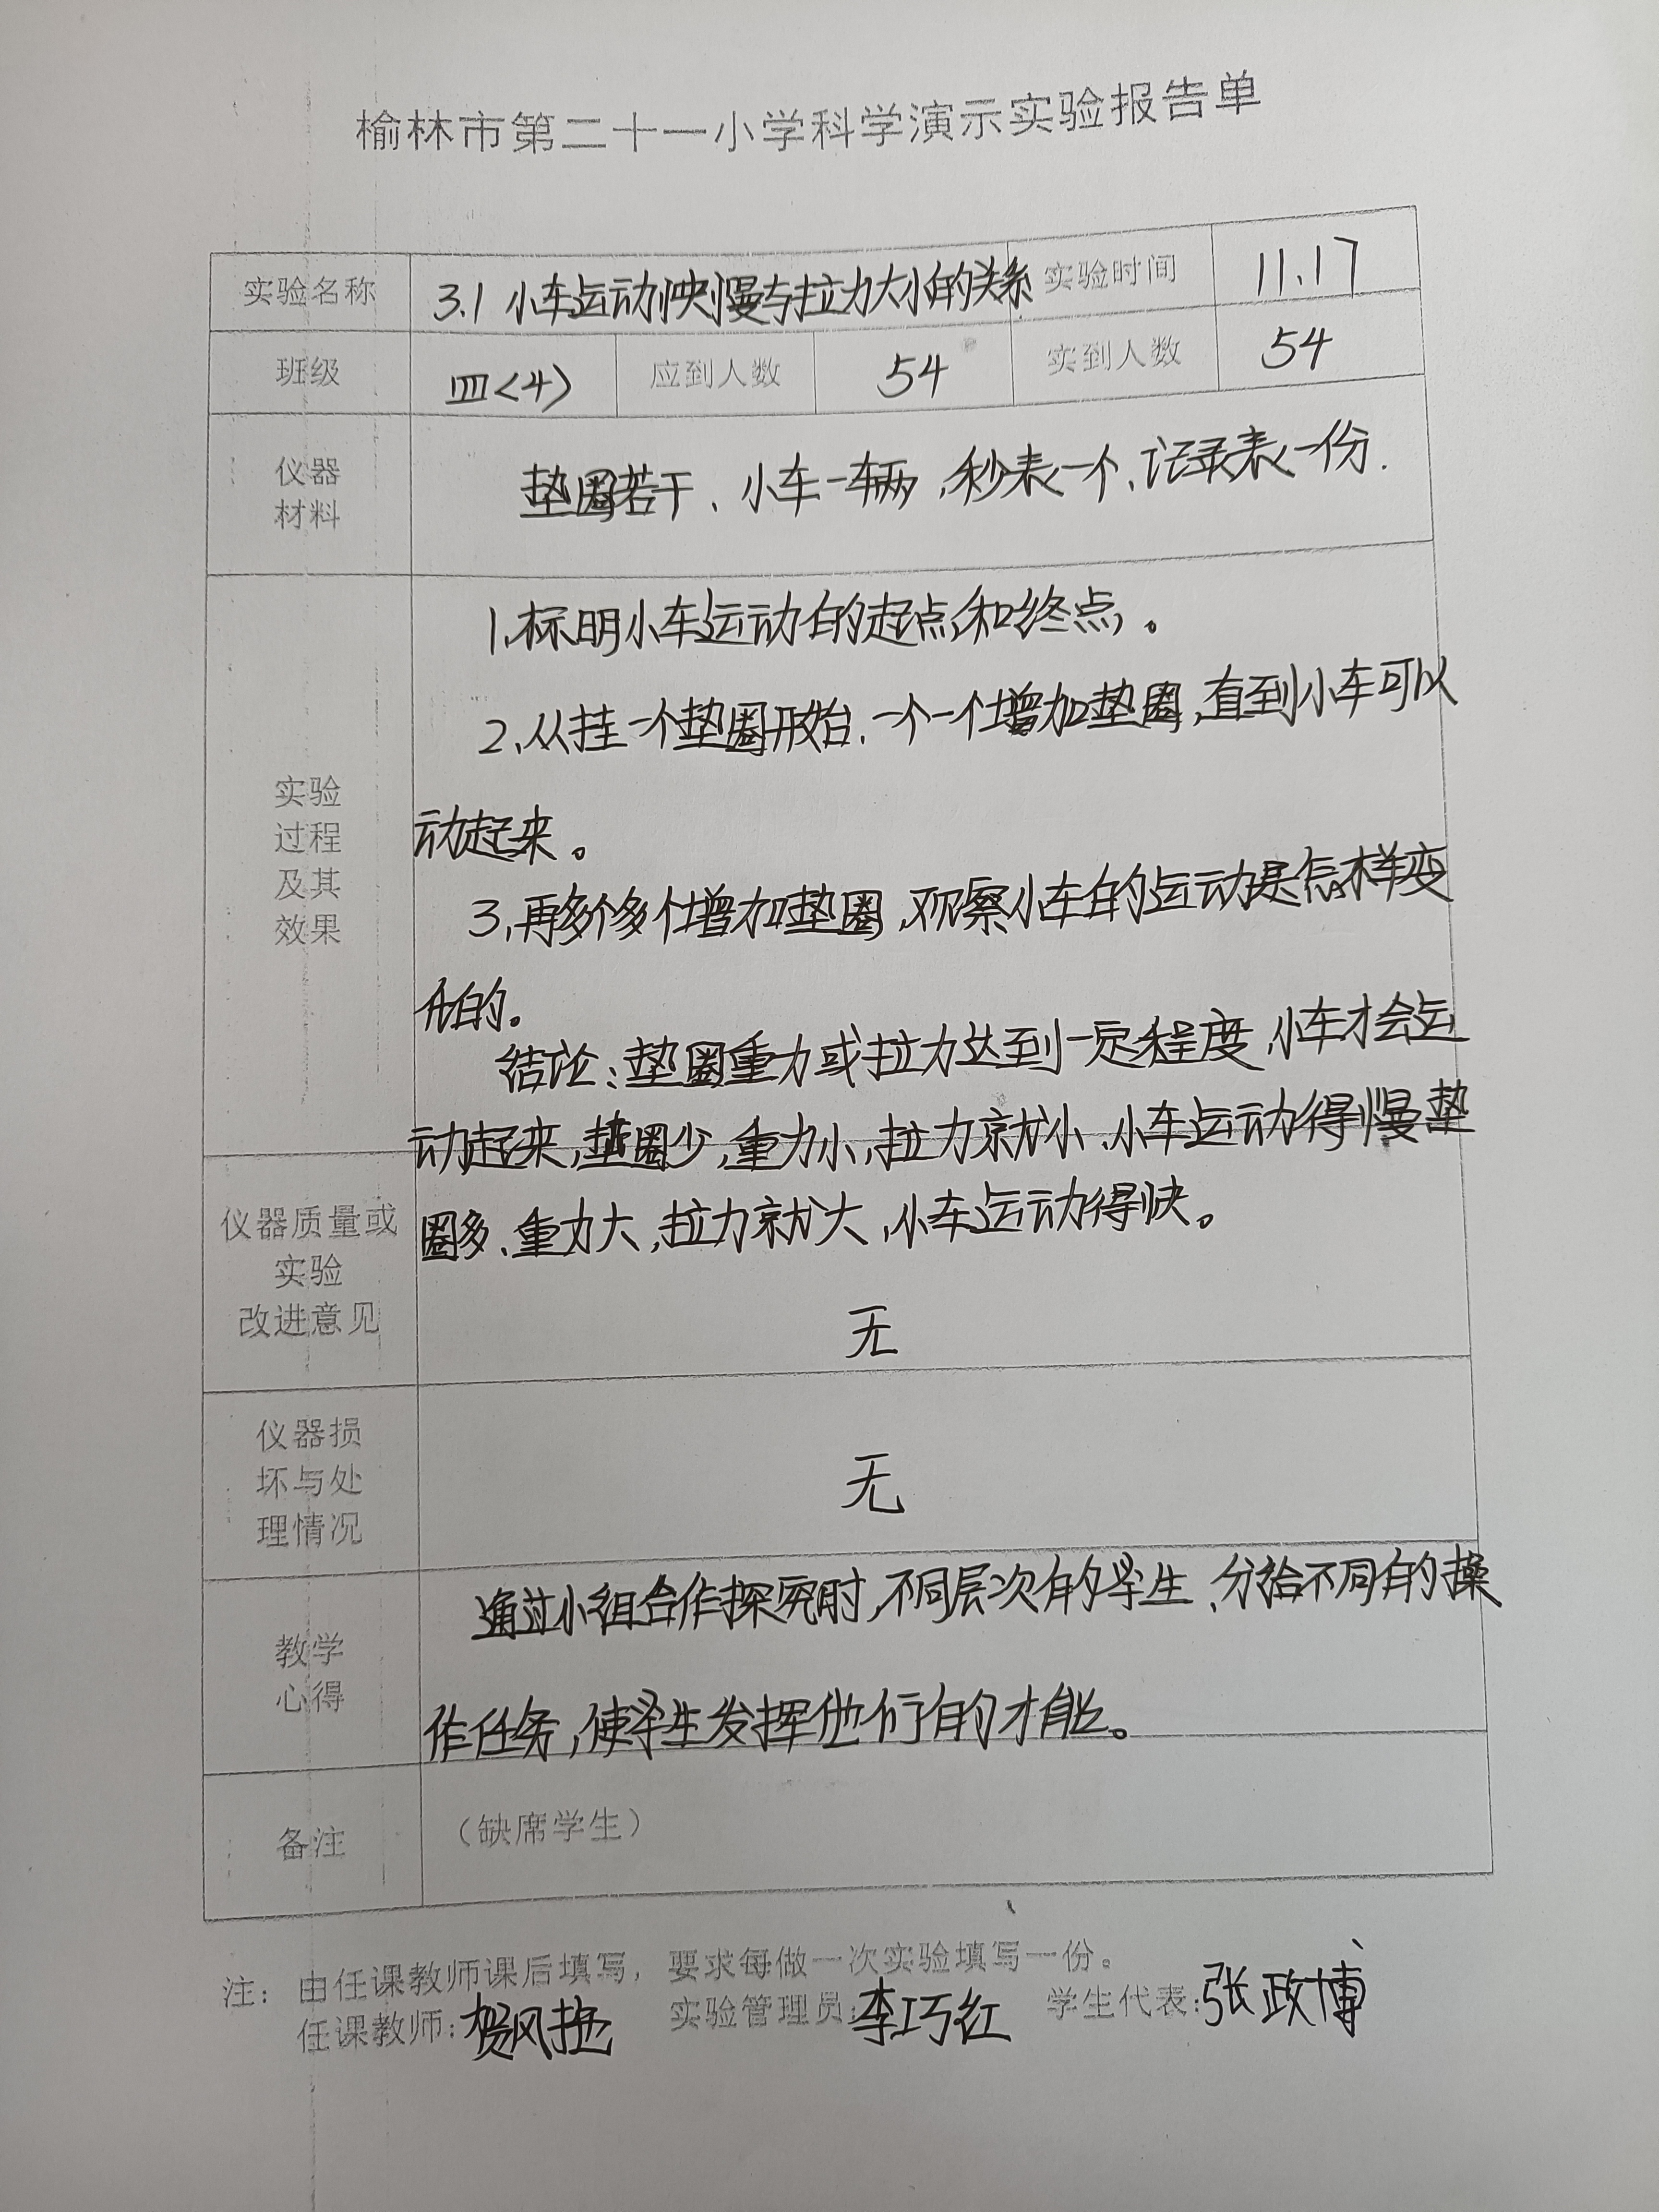 榆林市第二十一小学科学演示实验报告单
实验名称 3.1 小车运动快慢与拉力大小的关系 实验时间 11.17
班级 四<4> 应到人数 54 实到人数 54
仪器
材料
垫圈若干、小车一辆,秒表一个、记录表一份.
实验
过程
及其
效果
1、标明小车运动的起点和终点,。
2、从挂一个垫圈开始、一个一个增加垫圈,直到小车可以
动起来。
3、再多个多个增加垫圈,观察小车的运动是怎样变
化的。
结论:垫圈重力或拉力达到一定程度,小车才会运
动起来,垫圈少,重力小,拉力就小、小车运动得慢垫
圈多、重力大,拉力就大,小车运动得快。
仪器质量或
实验
改进意见
无
仪器损
坏与处
理情况
无
教学
心得
通过小组合作探究时,不同层次的学生、分给不同的操
作任务,使学生发挥他们的才能。
备注
(缺席学生)
注: 由任课教师课后填写, 要求每做一次实验填写一份。
任课教师:贺风艳 实验管理员:李巧红 学生代表:张政博